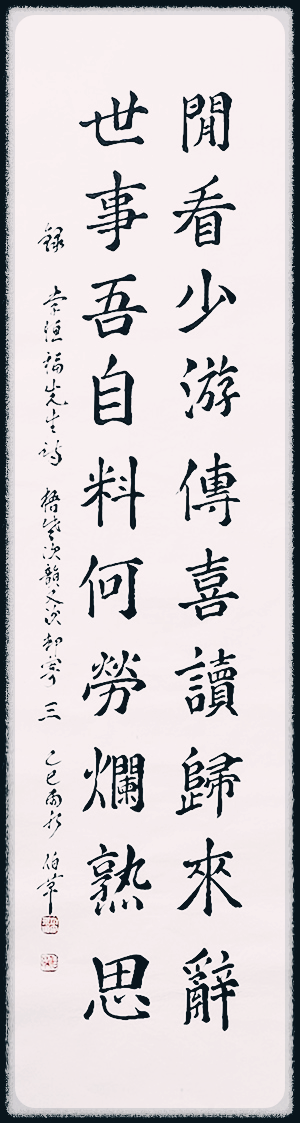 閒看少游傳喜讀歸來辭
世事吾自料何勞爛熟思
錄 常恒福先生詩 次韻又次 三 乙巳 伯華